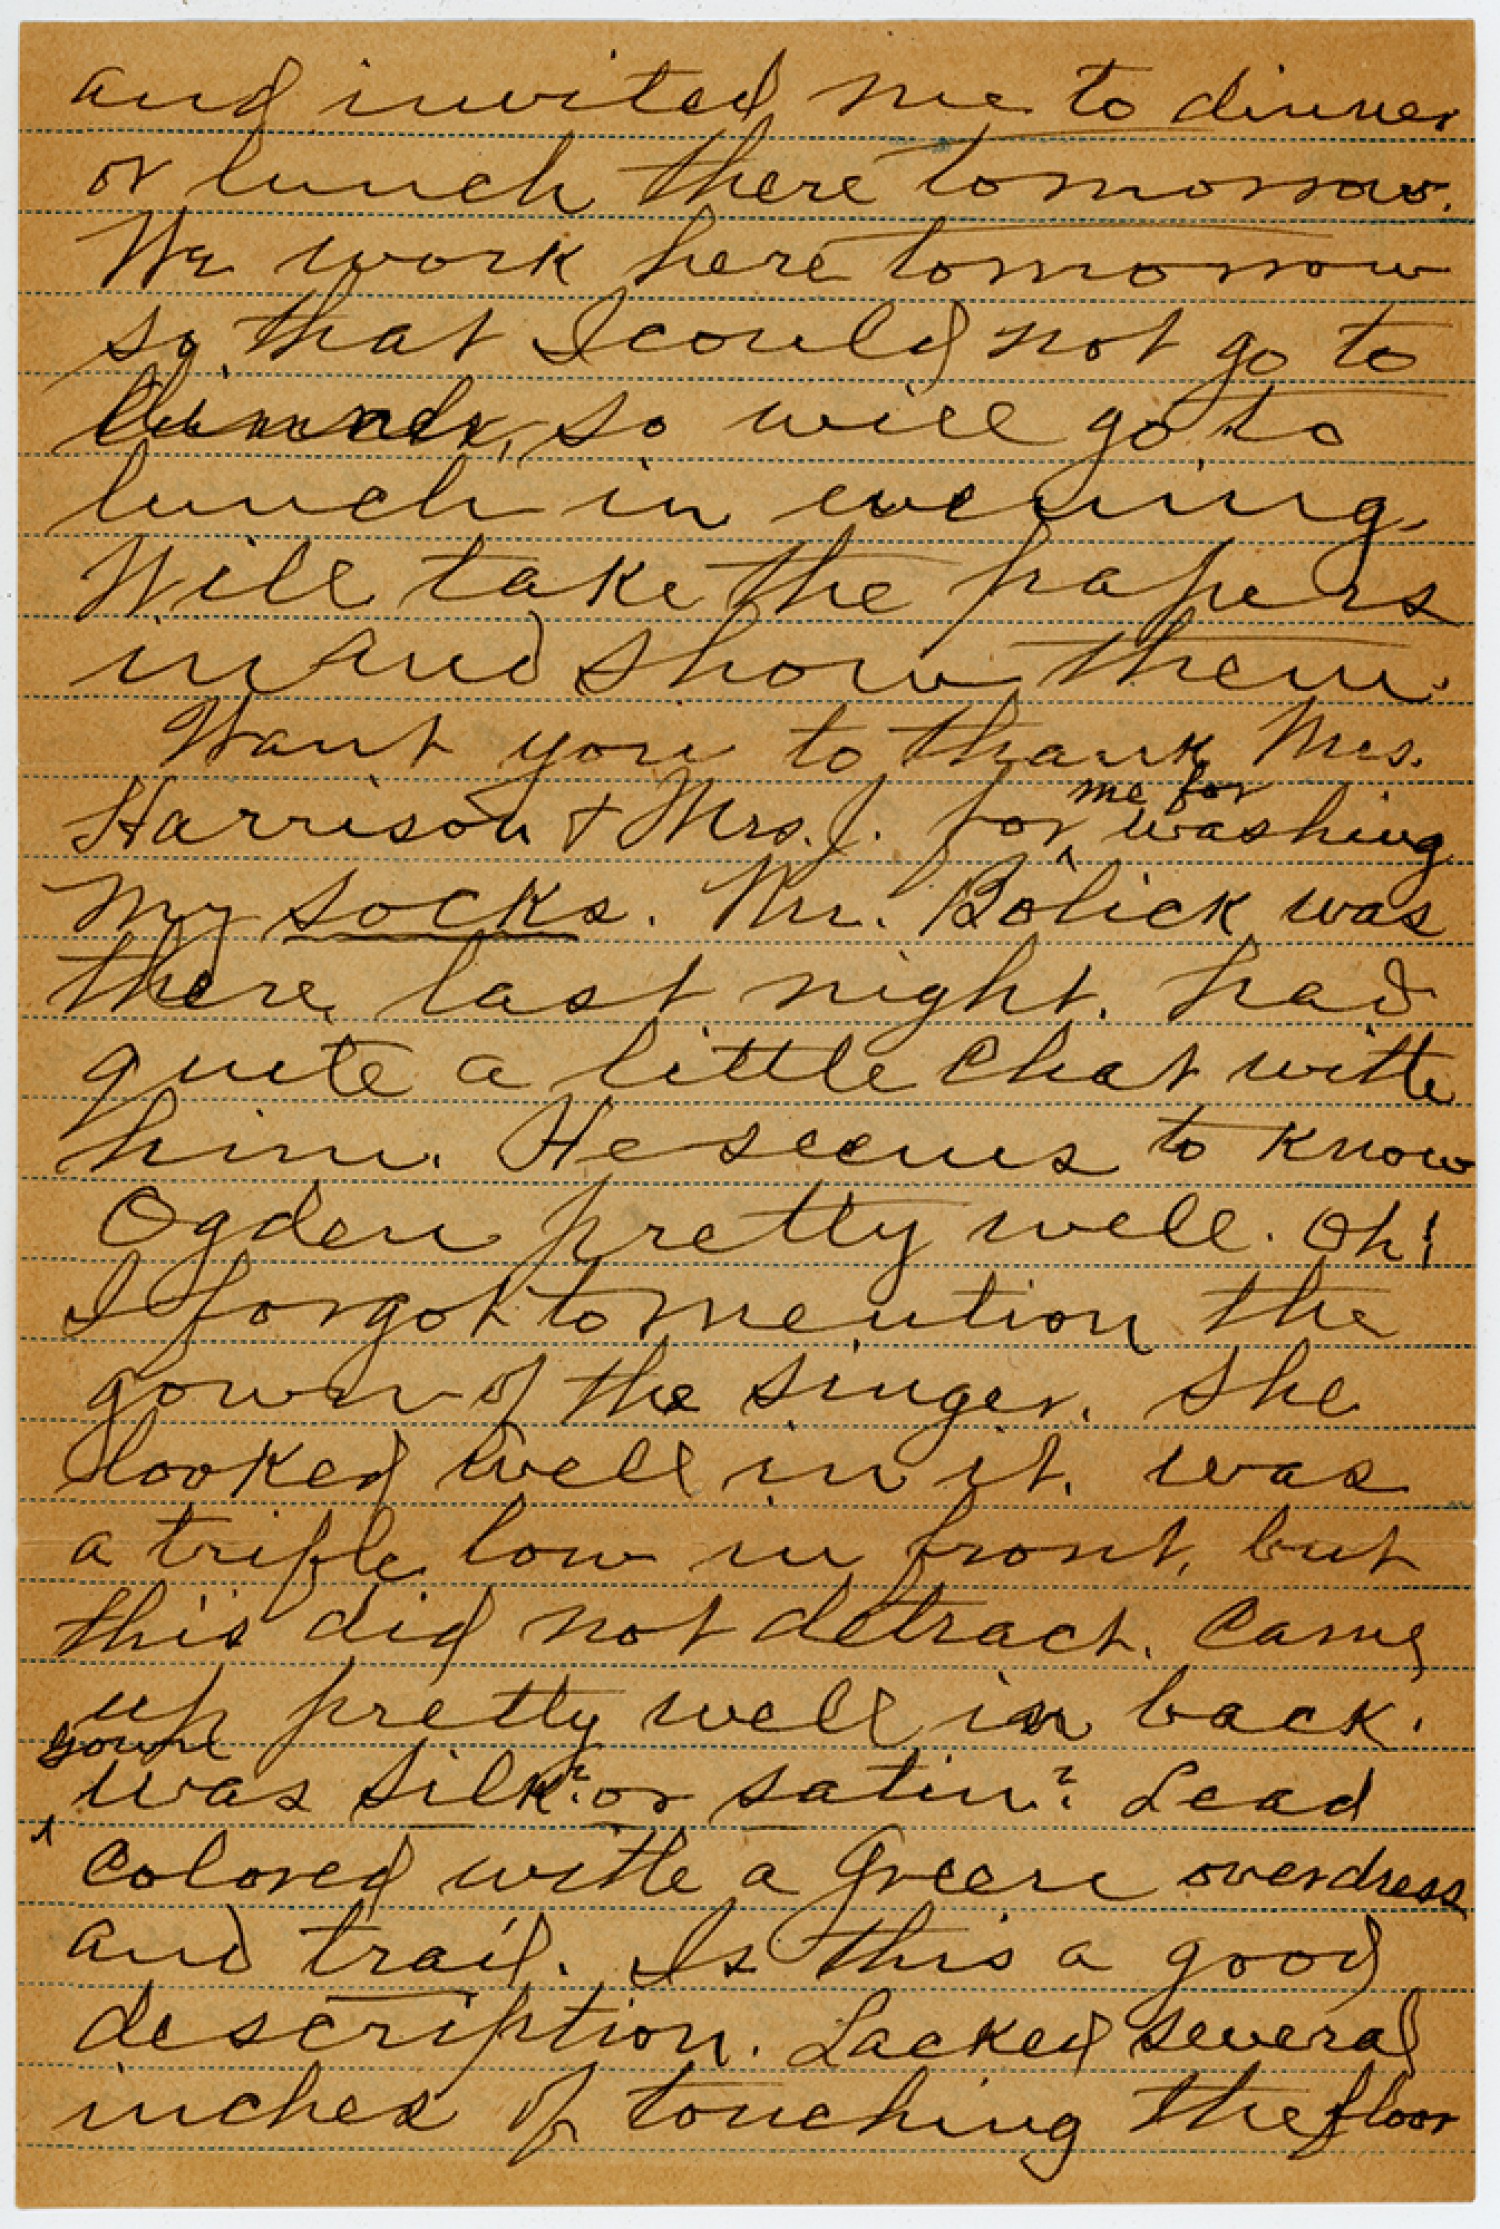 and invited me to dinner
or lunch there tomorrow.
We work here tomorrow
so that I could not go to
dinner, so will go to
lunch in evening.
Will take the papers
in and show them.
Want you to thank Mrs.
Harrison & Mrs. J. for me for washing
my socks. Mr. Bolick was
there last night. had
quite a little chat with
him. He seems to know
Ogden pretty well. Oh!
I forgot to mention the
gown of the singer. She
looked well in it. was
a trifle low in front, but
this did not detract. Came
up pretty well in back.
gown was silk? or satin? Lead
colored with a green overdress
and trail. Is this a good
description. Lacked several
inches of touching the floor